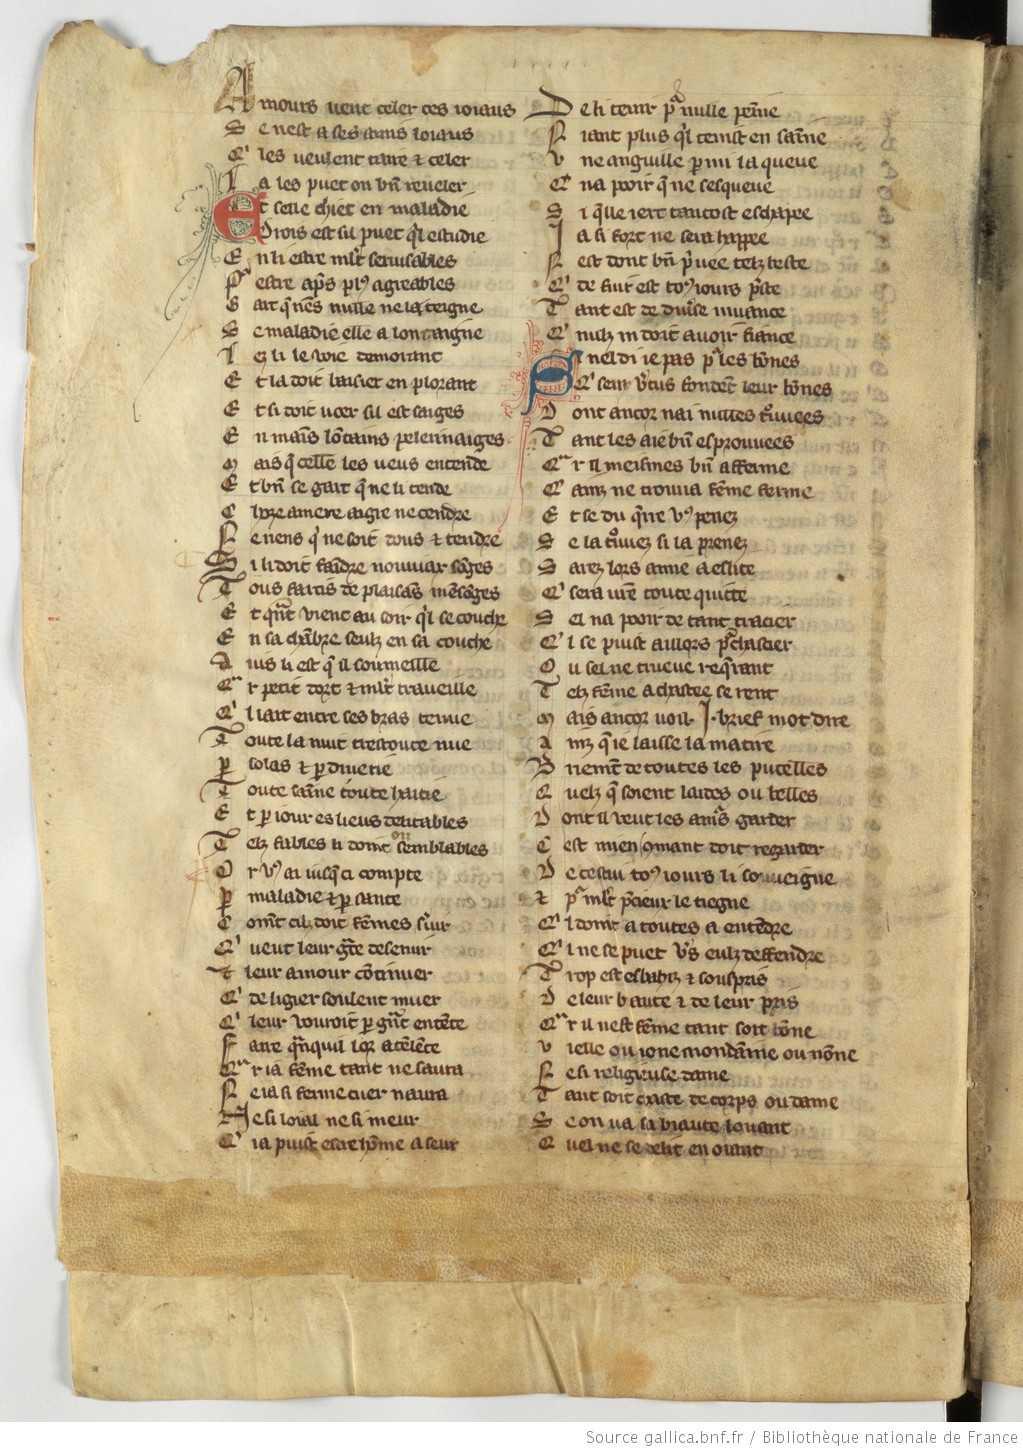 Amours veut celer ces ioiaus
Se nest a ses amis loiaus
Q' les veulent taire & celer
Ia les puet on bn reveler
Et selle chiet en maladie
Drois est sil puet q'l estudie
En li estre mlt servisables
Por estre aps plus agreables
Gart q'nens nulle ne la teigne
Se maladie elle a lontaigne
Iez li le voie demorant
Et la doit baisier en plorant
Et si doit voer sil est saiges
En mains lontains pelerinaiges
Mais q celle les veus entende
Et bn se gart q ne li tende
Chose amere aigre ne cendre
Ne riens q ne soit dous & tendre
Si li doit faindre nouviax songes
Tous farcis de plaisans mensonges
Et qnt vient au soir q'l se couche
En sa chambre seulz en sa couche
Avis li est q il soumeille
Car petit dort & mlt traveille
Q'l lait entre ses bras tenue
Toute la nuit trestoute nue
Par solas & par druerie
Toute saine toute haitie
Et par iour es lieus delitables
Telz fables li doint ou semblables
Or vous ai iusq ci compte
Par maladie & par sante
Coment cilz doit femes servir
Q' veut leur gce deservir
& leur amour continuer
Q' de ligier seulent muer
Q' leur vouroit par gnt entente
Faire qnquil lor atalente
Car ia feme tant ne saura
Ne ia si ferme cuer naura
Ne si loial ne si meur
Q' ia puist estre home a seur
De li tenir par nulle peine
Niant plus q'l tenist en saine
Une anguille parmi la queue
Q' na pooir q ne sesqueue
Si q'lle iert tantost eschapee
Ia si fort ne sera happee
Nest dont bn privee telz beste
Q' de fuir est tous iours preste
Tant est de diverse muance
Q' nulz ni doit avoir fiance
Si nel di ie pas por les bones
Q' seur vertus fondent leur bones
Dont ancor nai nulles trouvees
Tant les aie bn esprouvees
Car il meismes bn afferme
Q' ainz ne trouva feme ferme
Et se du q're vous penez
Se la trouvez si la prenez
Sarez lors amie aeslite
Q' sera vre toute quitte
Sel na pooir de tant tracier
Q'l se puist aillors porchascier
Ou sel ne trueve req'rant
Telz feme a chastee se rent
Mais ancor voil .I. brief mot dire
Ainz q ie laisse la matire
Briement de toutes les pucelles
Quelz q soient laides ou belles
Dont il veut les amrs garder
Cest mien comant doit regarder
De cestui tous iours li souveigne
& por mlt precieux le tiegne
Q'l doint a toutes a entendre
Q'l ne se puet vers eulz deffendre
Trop est esbahiz & souspris
De leur biaute & de leur pris
Car il nest feme tant soit bone
Vielle ou ione mondaine ou none
Ne si religieuse dame
Tant soit chaste de corps ou dame
Se on va sa biaute louant
Quel ne se delit en oiant
Source gallica.bnf.fr / Bibliothèque nationale de France